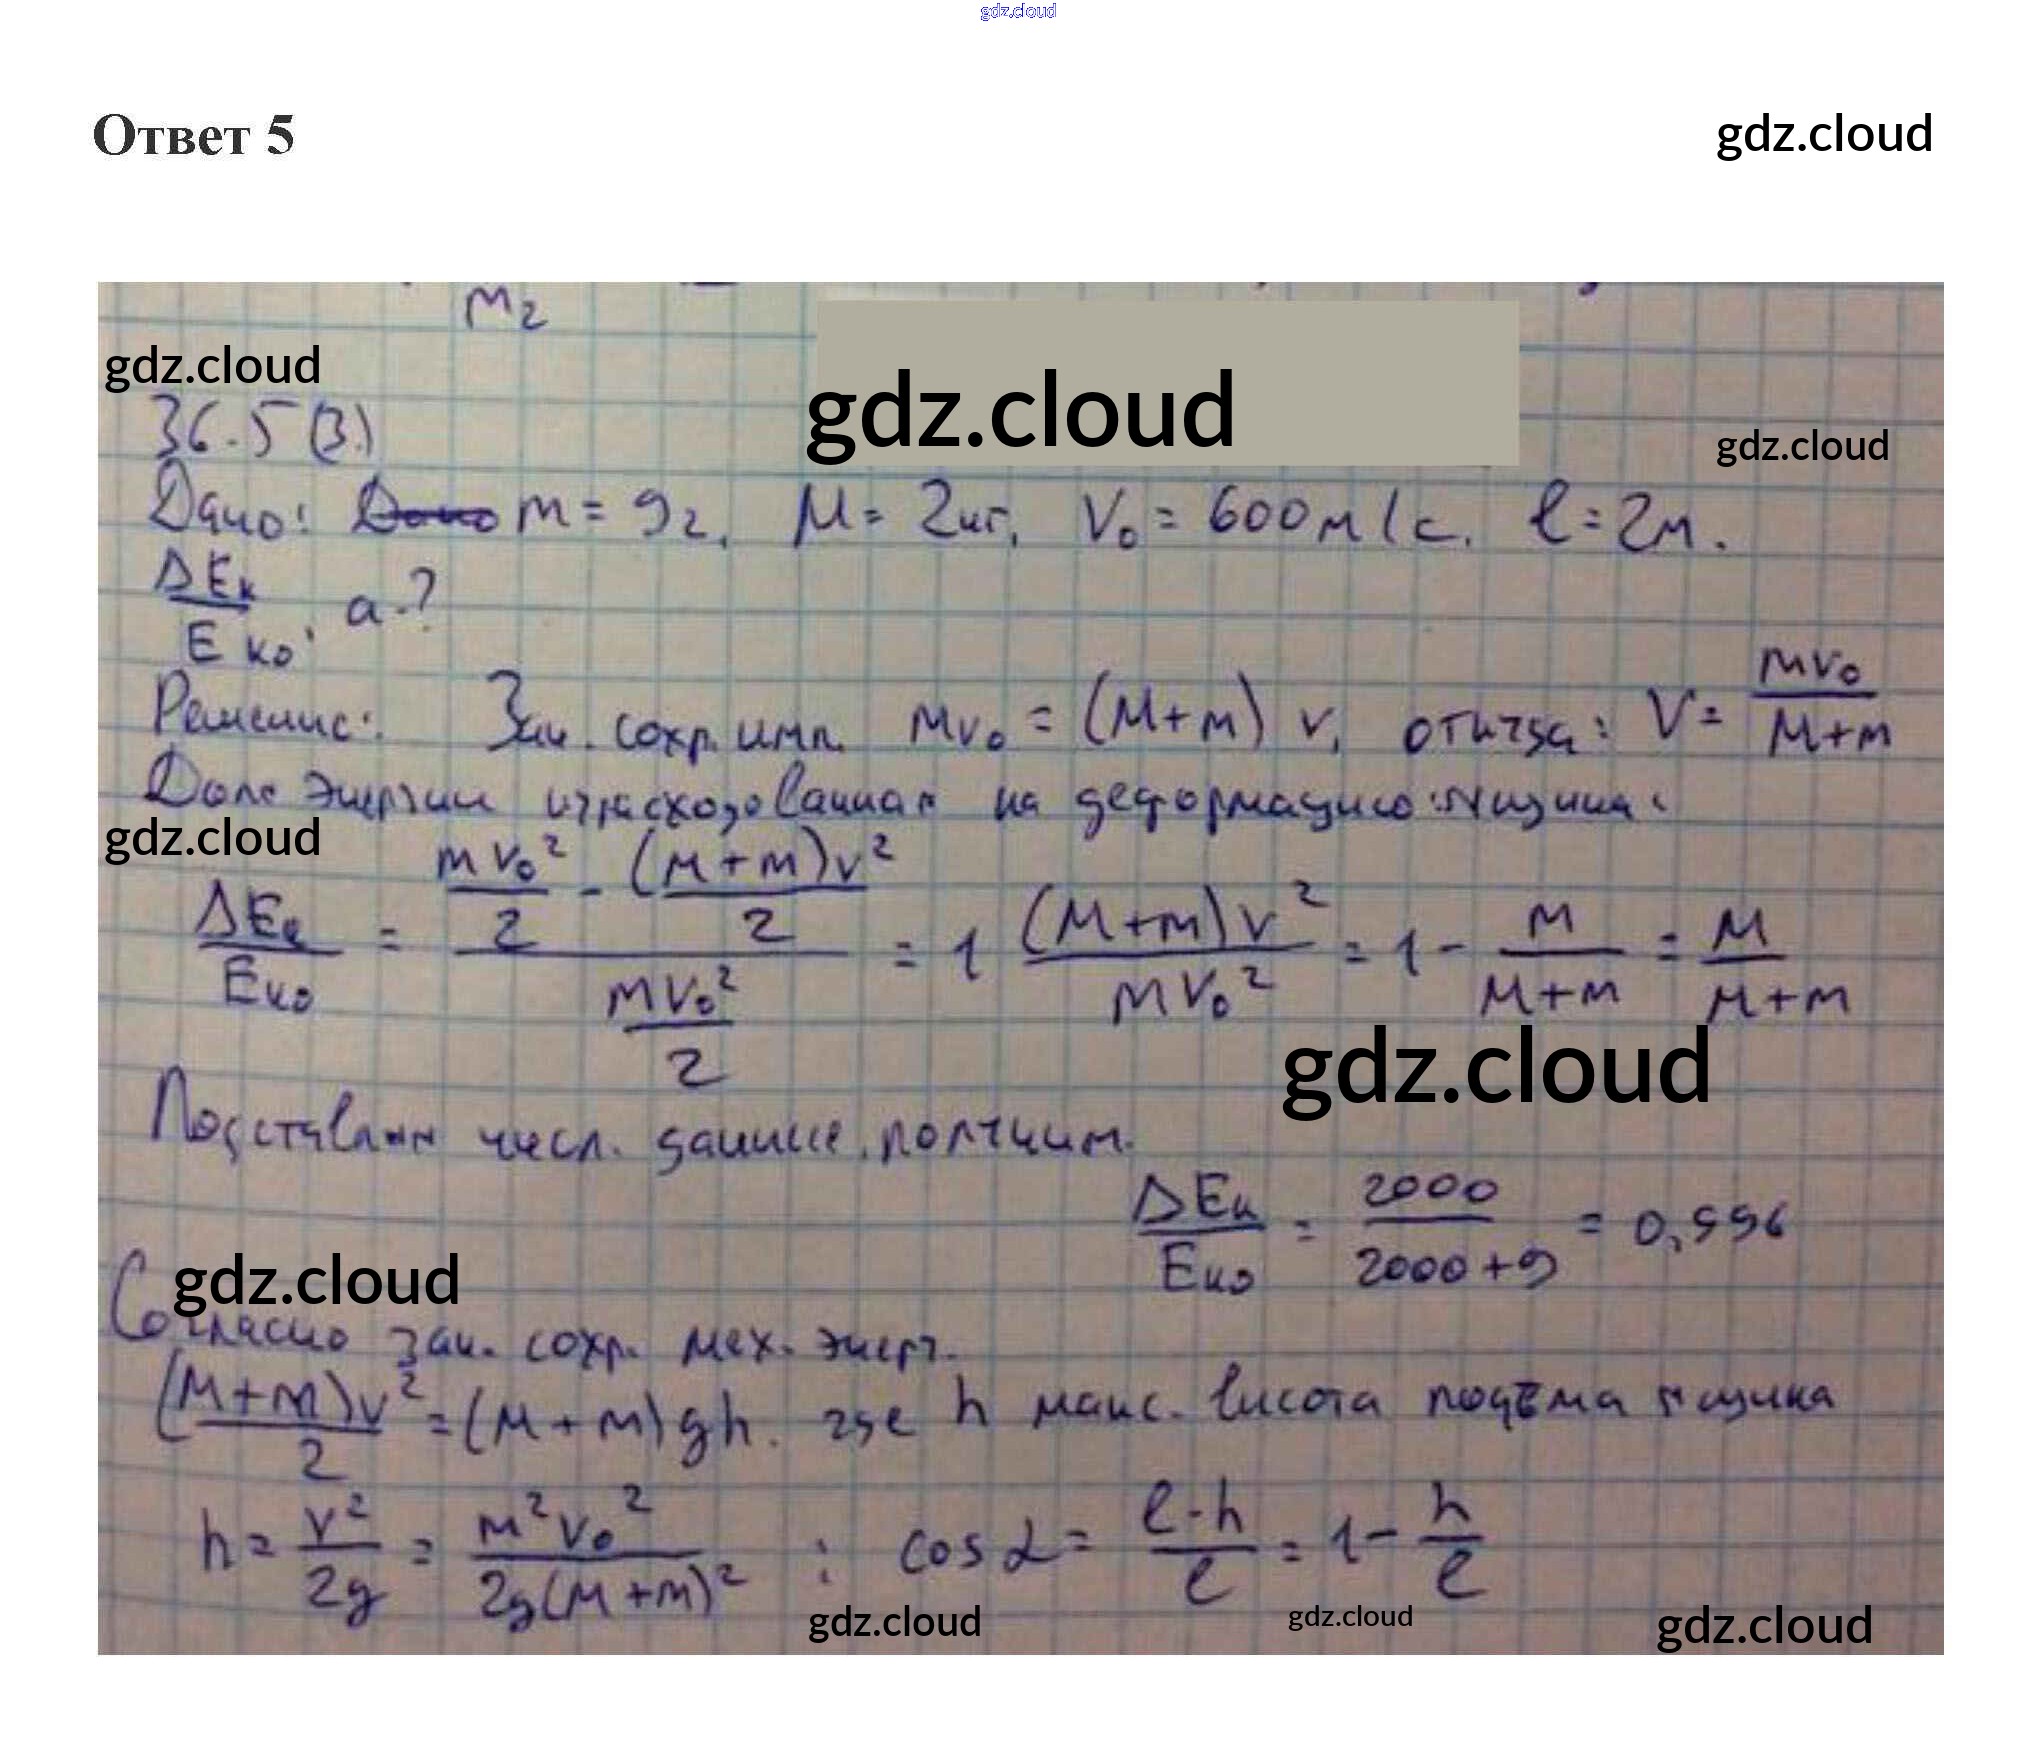 gdz.cloud
Ответ 5
gdz.cloud
m₂
gdz.cloud
gdz.cloud
36.5 (3.)
gdz.cloud
Дано: Дано m = 9г, M = 2кг, V₀ = 600м/с. ℓ = 2м.
ΔEк/Eк₀, a-?
Решение: Зак. сохр. имп. mv₀ = (M+m) v, откуда: V = mv₀/(M+m)
Доля энергии израсходованная на деформацию ящика:
gdz.cloud
ΔEк/Eк₀ = (mv₀²/2 - (M+m)v²/2)/(mv₀²/2) = 1 (M+m)v²/mv₀² = 1 - m/(M+m) = M/(M+m)
gdz.cloud
Подставляя числ. данные, получим.
ΔEк/Eк₀ = 2000/(2000+9) = 0,996
gdz.cloud
Согласно зак. сохр. мех. энерг.
(M+m)v²/2 = (M+m)gh. где h макс. высота подъёма ящика
h = v²/2g = m²v₀²/2g(M+m)² ; cos α = (ℓ-h)/ℓ = 1 - h/ℓ
gdz.cloud
gdz.cloud
gdz.cloud